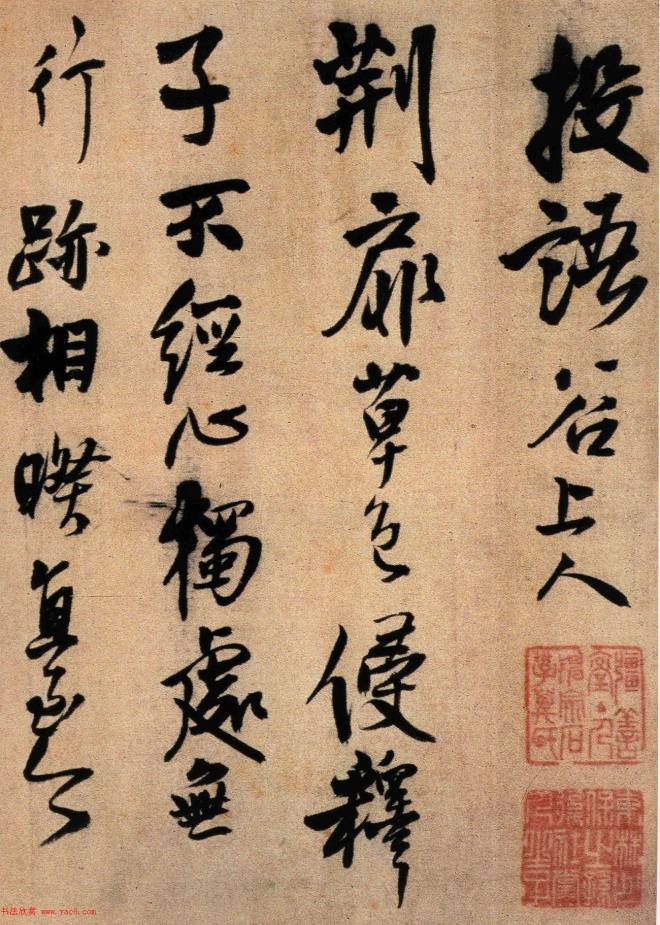 投語谷上人
荊扉草色侵釋
子不經心獨處無
行跡相暌直至今
书法欣赏 www.yac8.com